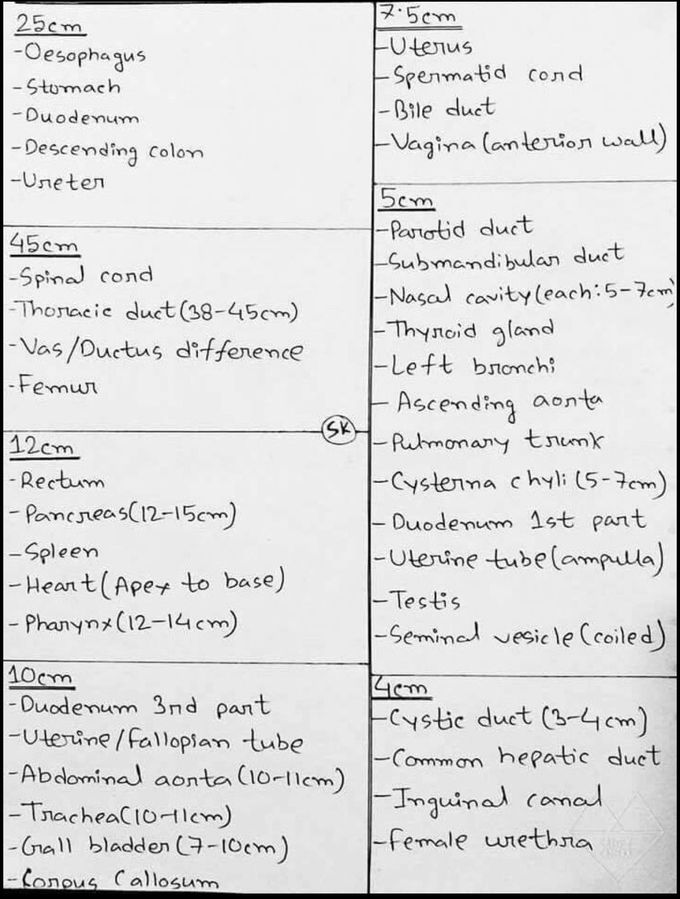 25cm
-Oesophagus
-Stomach
-Duodenum
-Descending colon
-Ureter
45cm
-Spinal cord
-Thoracic duct(38-45cm)
-Vas/Ductus difference
-Femur
SK
12cm
-Rectum
-Pancreas(12-15cm)
-Spleen
-Heart(Apex to base)
-Pharynx(12-14cm)
10cm
-Duodenum 3rd part
-Uterine/Fallopian tube
-Abdominal aorta(10-11cm)
-Trachea(10-11cm)
-Gall bladder(7-10cm)
-Corpus Callosum
7.5cm
-Uterus
-Spermatid cord
-Bile duct
-Vagina(anterior wall)
5cm
-Parotid duct
-Submandibular duct
-Nasal cavity(each:5-7cm)
-Thyroid gland
-Left bronchi
-Ascending aorta
-Pulmonary trunk
-Cysterna chyli(5-7cm)
-Duodenum 1st part
-Uterine tube(ampulla)
-Testis
-Seminal vesicle(coiled)
4cm
-Cystic duct(3-4cm)
-Common hepatic duct
-Inguinal canal
-Female urethra